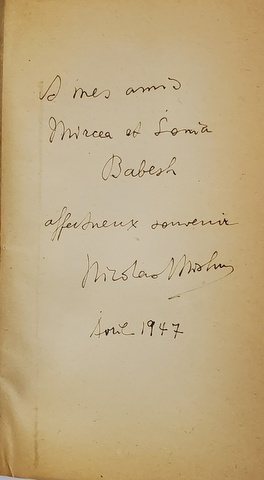 A mes amis
Mircea et Sonia
Babesh
affectueux souvenir
Nicolas
Avril 1947